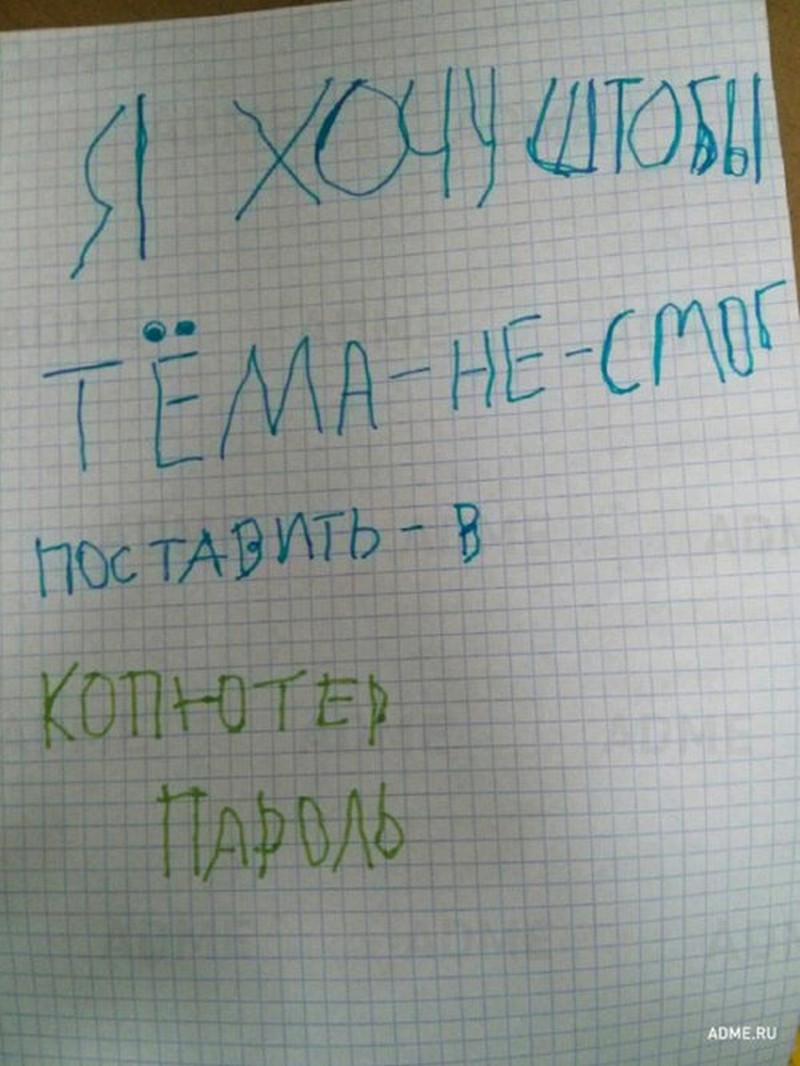 Я ХОЧУ ШТОБЫ
ТЁМА-НЕ-СМОГ
ПОСТАВИТЬ-В
КОПЮТЕР
ПАРОЛЬ
ADME.RU